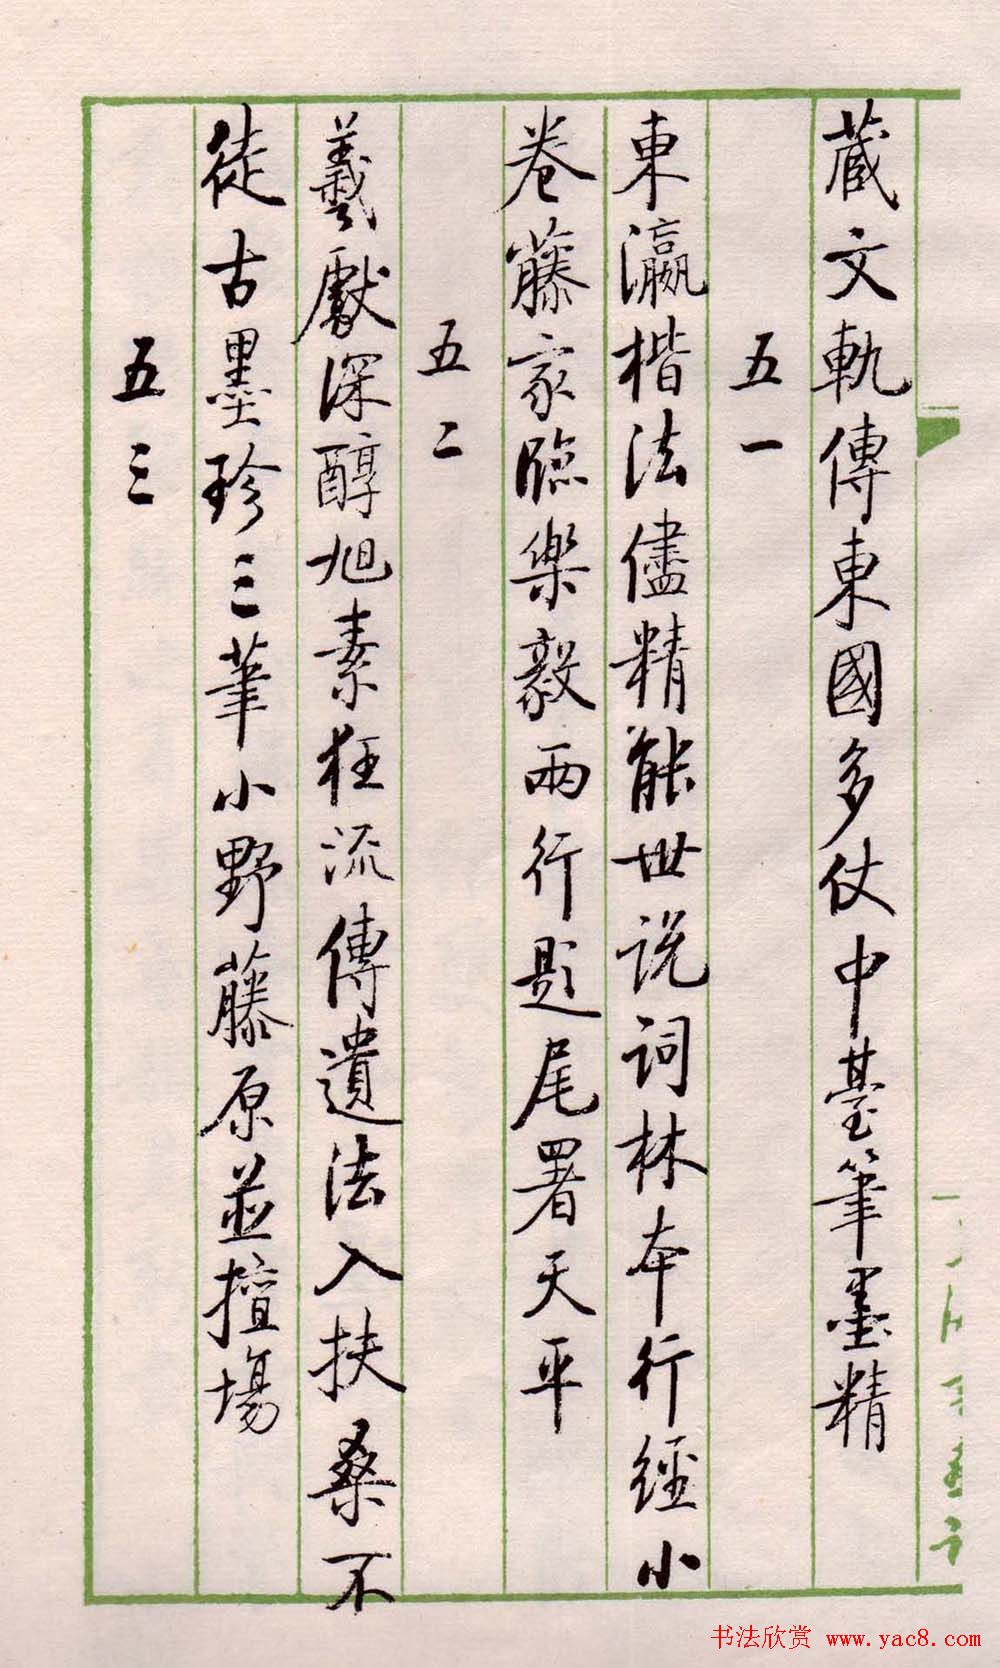 藏文軌傳東國多仗中臺筆墨精
五一
東瀛楷法儘精能世説詞林本行經小
卷藤家臨樂毅兩行題尾署天平
五二
羲獻深醇旭素狂流傳遺法入扶桑不
徒古墨珍三筆小野藤原並擅場
五三
书法欣赏 www.yac8.com